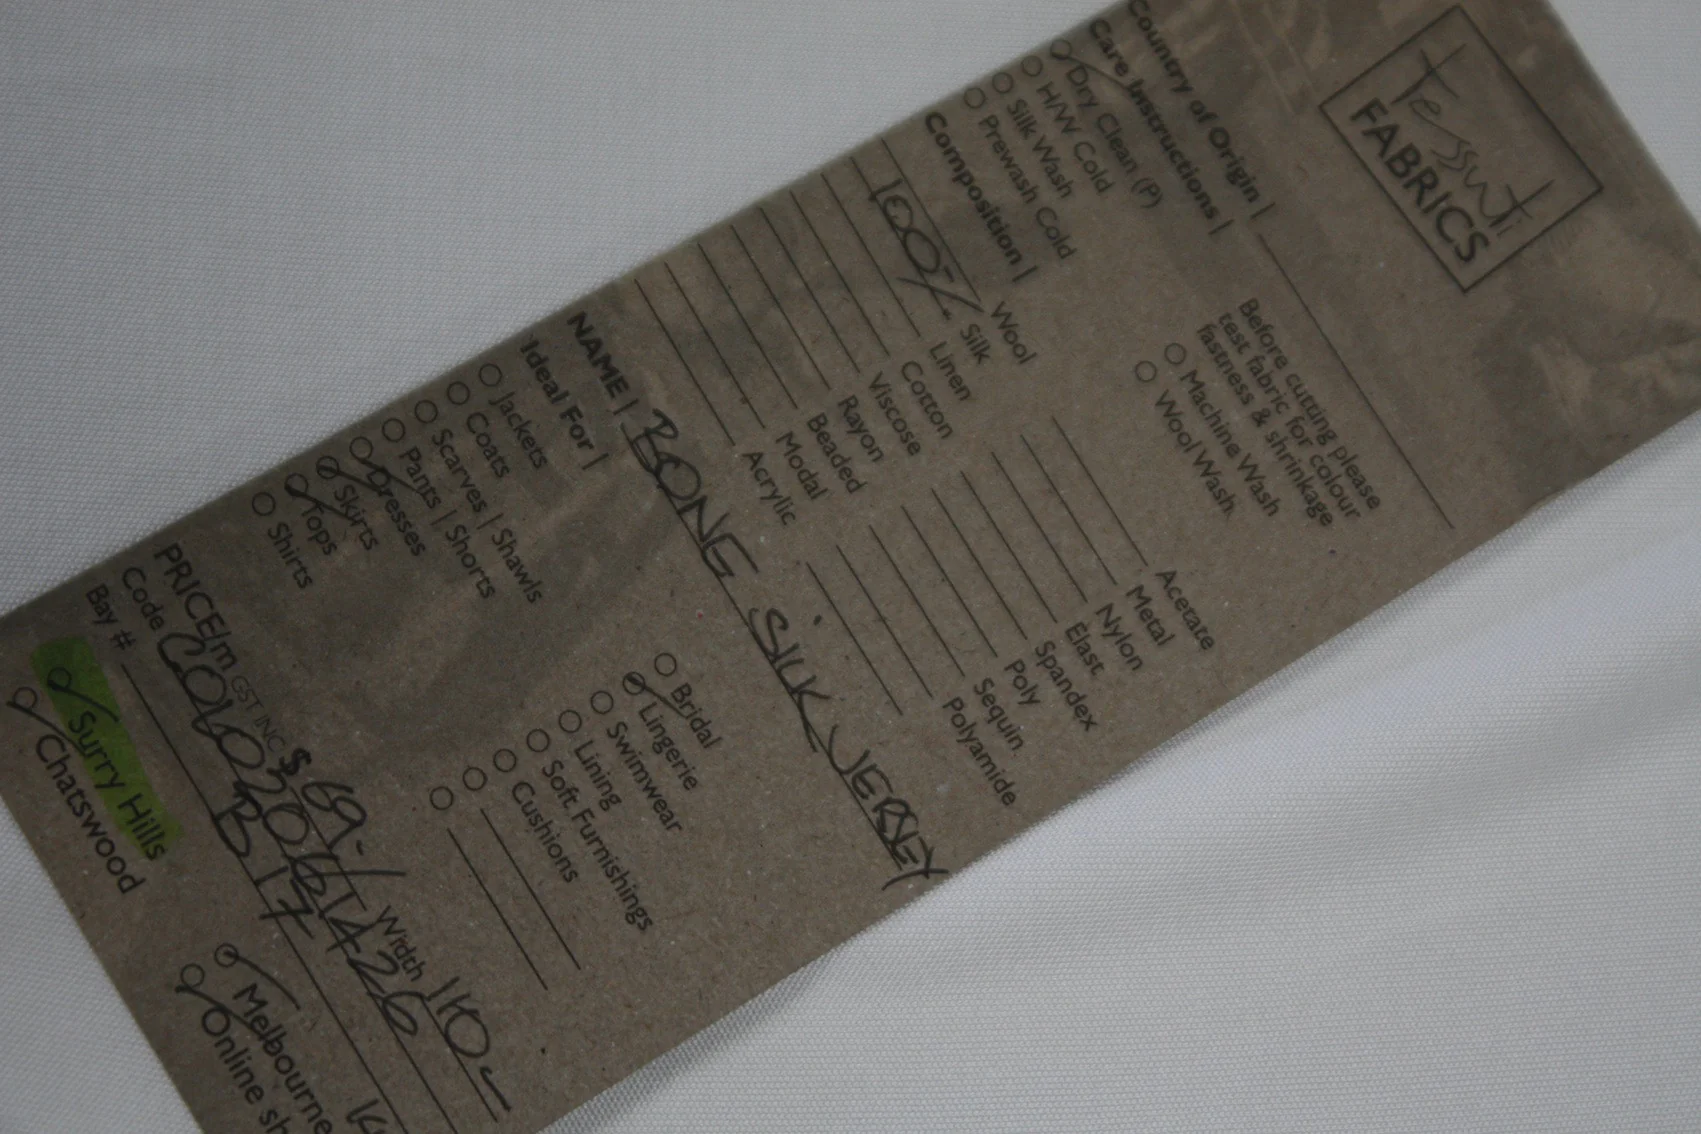 Tessuti
FABRICS
Country of Origin |
Care Instructions |
Before cutting please
test fabric for colour
fastness & shrinkage
Dry Clean (P)
H/W Cold
Silk Wash
Prewash Cold
Machine Wash
Wool Wash
Composition |
Wool
100% Silk
Linen
Cotton
Viscose
Rayon
Beaded
Modal
Acrylic
Acetate
Metal
Nylon
Elast
Spandex
Poly
Sequin
Polyamide
NAME | BONG SILK JERSEY
Ideal For |
Jackets
Coats
Scarves | Shawls
Pants | Shorts
Dresses
Skirts
Tops
Shirts
Bridal
Lingerie
Swimwear
Lining
Soft Furnishings
Cushions
PRICE/m GST INC $69.- Width
Code
Bay # B17
Surry Hills
Chatswood
Melbourne
Online